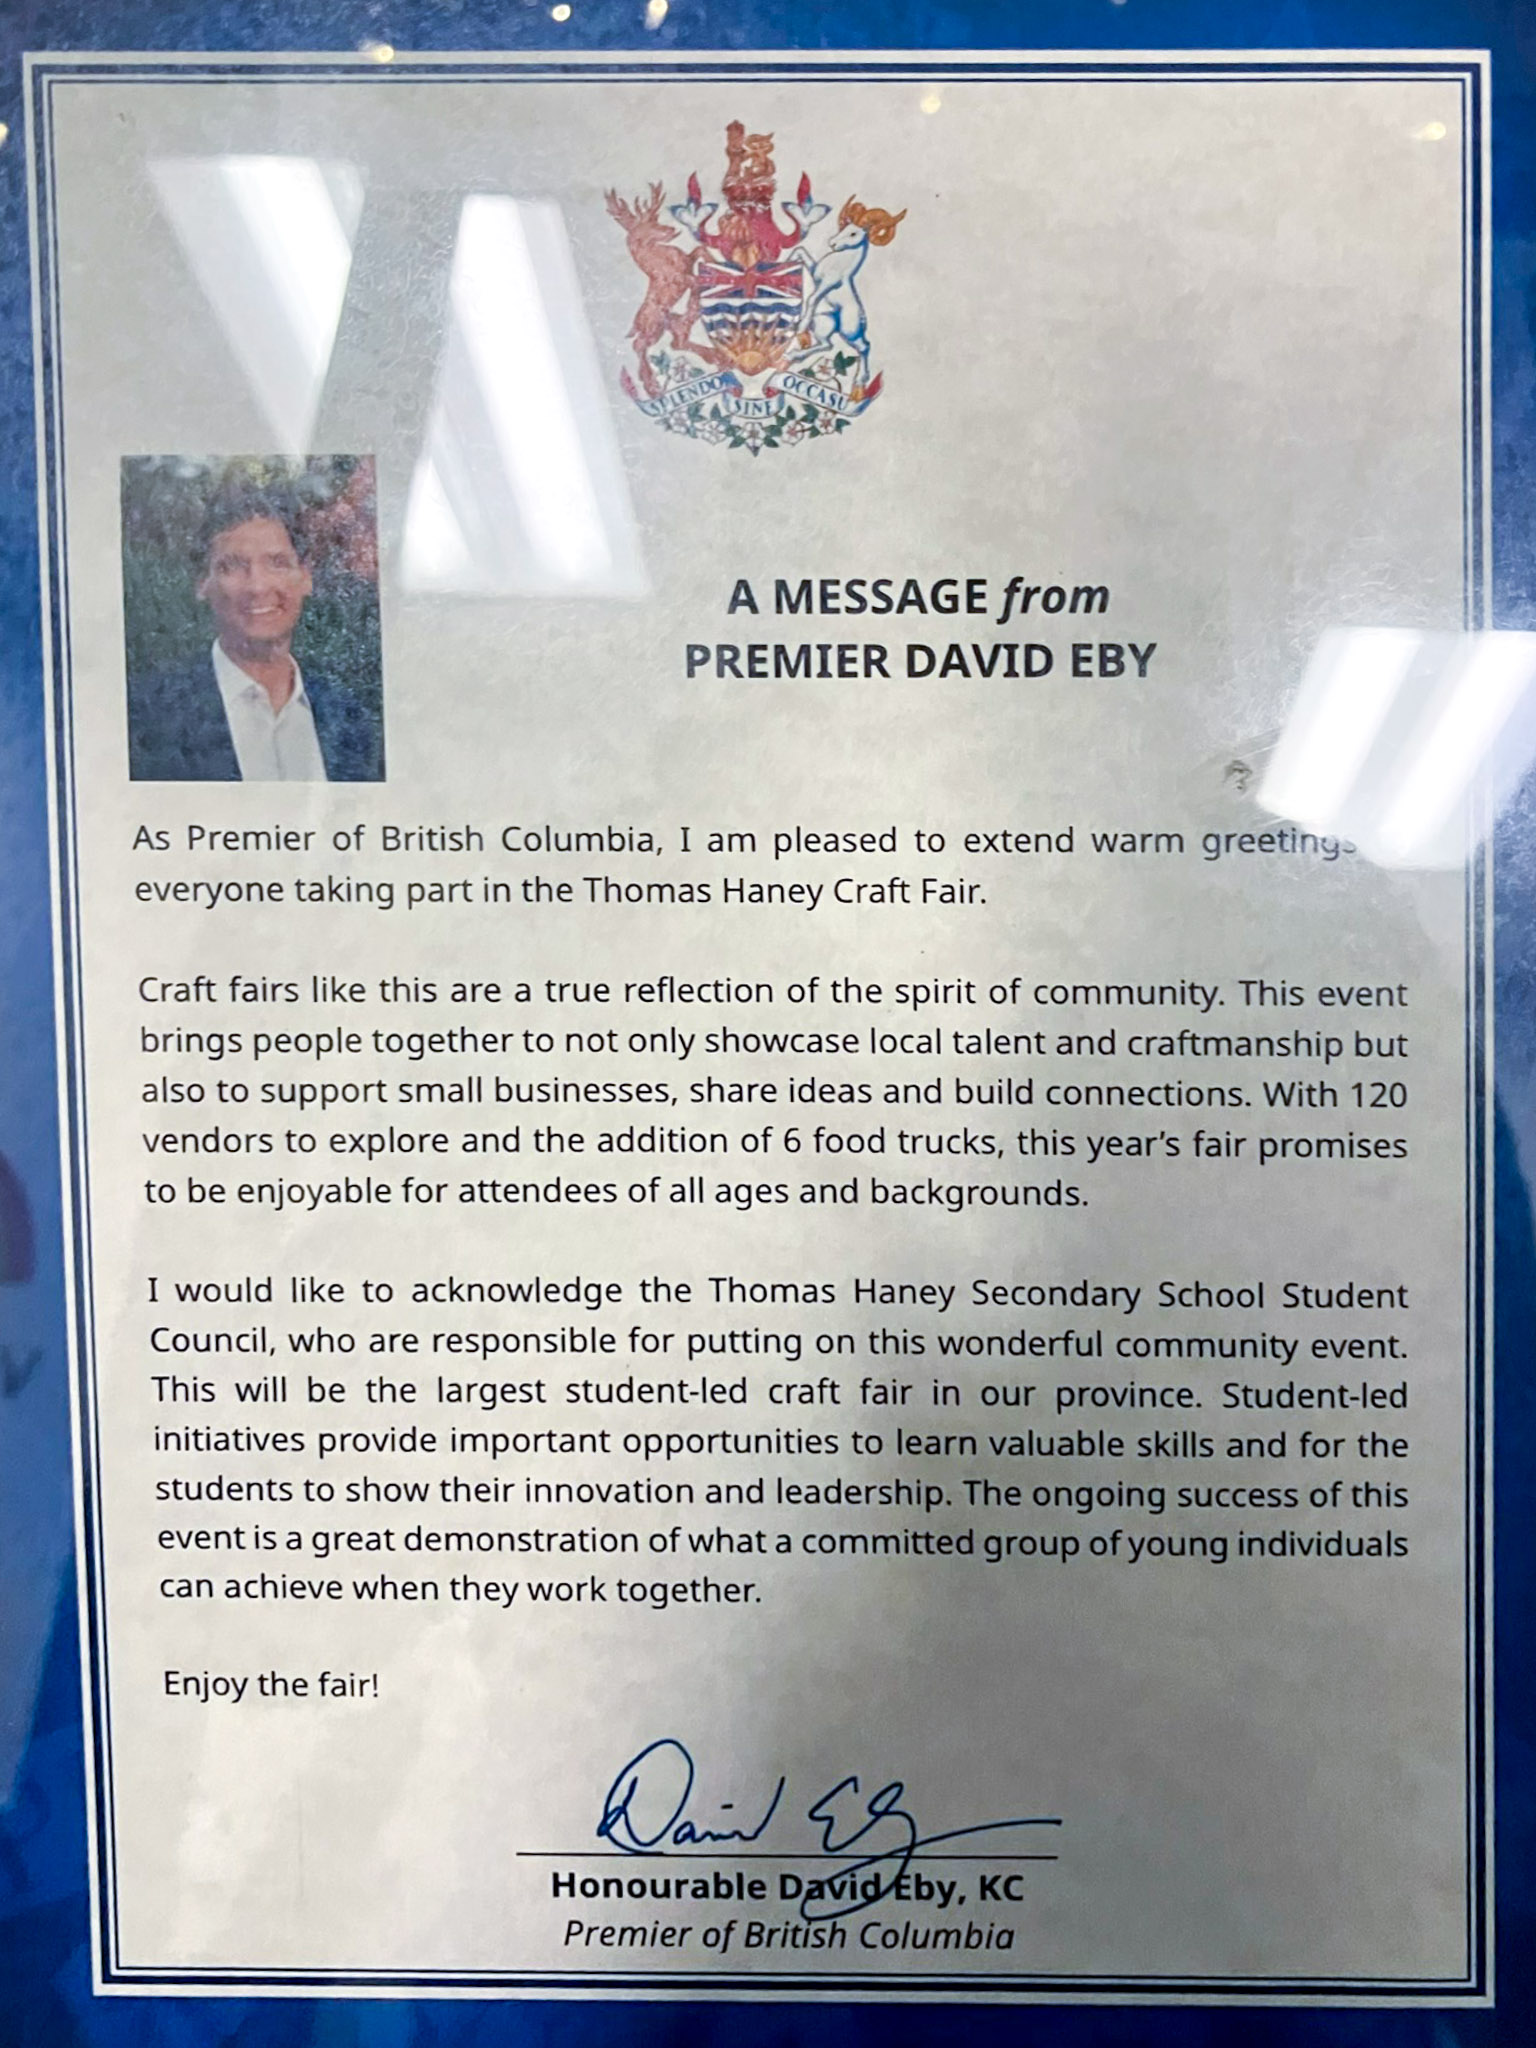 SPLENDOR SINE OCCASU
A MESSAGE from
PREMIER DAVID EBY
As Premier of British Columbia, I am pleased to extend warm greetings
everyone taking part in the Thomas Haney Craft Fair.
Craft fairs like this are a true reflection of the spirit of community. This event
brings people together to not only showcase local talent and craftmanship but
also to support small businesses, share ideas and build connections. With 120
vendors to explore and the addition of 6 food trucks, this year’s fair promises
to be enjoyable for attendees of all ages and backgrounds.
I would like to acknowledge the Thomas Haney Secondary School Student
Council, who are responsible for putting on this wonderful community event.
This will be the largest student-led craft fair in our province. Student-led
initiatives provide important opportunities to learn valuable skills and for the
students to show their innovation and leadership. The ongoing success of this
event is a great demonstration of what a committed group of young individuals
can achieve when they work together.
Enjoy the fair!
David Eby
Honourable David Eby, KC
Premier of British Columbia